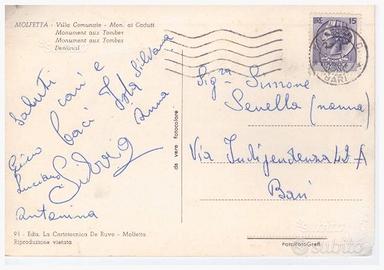 MOLFETTA - Villa Comunale - Mon. ai Caduti
Monument aux Tombes
Monument aux Tombes
Denkmal
15
BARI
Saluti
cari e
baci
Silvana
Anna
Luciano
Silvia
Antonina
Sig.ra Simone
Via Indipendenza 42 A
Bari
da vera fotocolore
91 - Ediz. La Cartotecnica De Ruvo - Molfetta
Riproduzione vietata
subito